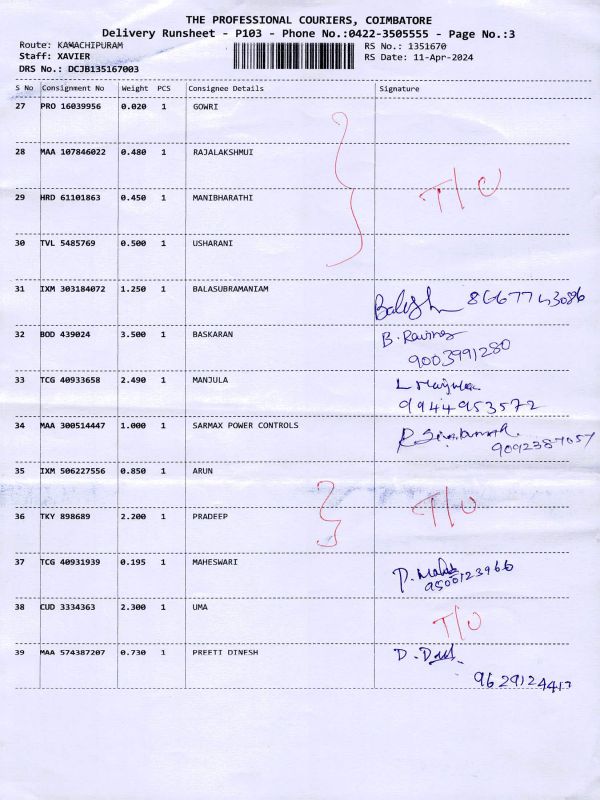 THE PROFESSIONAL COURIERS, COIMBATORE
Delivery Runsheet - P103 - Phone No.:0422-3505555 - Page No.:3
Route: KAMACHIPURAM RS No.: 1351670
Staff: XAVIER RS Date: 11-Apr-2024
DRS No.: DCJB135167003
S No Consignment No Weight PCS Consignee Details Signature
27 PRO 16039956 0.020 1 GOWRI
28 MAA 107846022 0.480 1 RAJALAKSHMUI
T/O
29 HRD 61101863 0.450 1 MANIBHARATHI
30 TVL 5485769 0.500 1 USHARANI
31 IXM 303184072 1.250 1 BALASUBRAMANIAM
32 BOD 439024 3.500 1 BASKARAN B.
9003991280
33 TCG 40933658 2.490 1 MANJULA L
9944953572
34 MAA 300514447 1.000 1 SARMAX POWER CONTROLS
9092387057
35 IXM 506227556 0.850 1 ARUN
T/O
36 TKY 898689 2.200 1 PRADEEP
37 TCG 40931939 0.195 1 MAHESWARI P.
9500123966
38 CUD 3334363 2.300 1 UMA T/O
39 MAA 574387207 0.730 1 PREETI DINESH D.